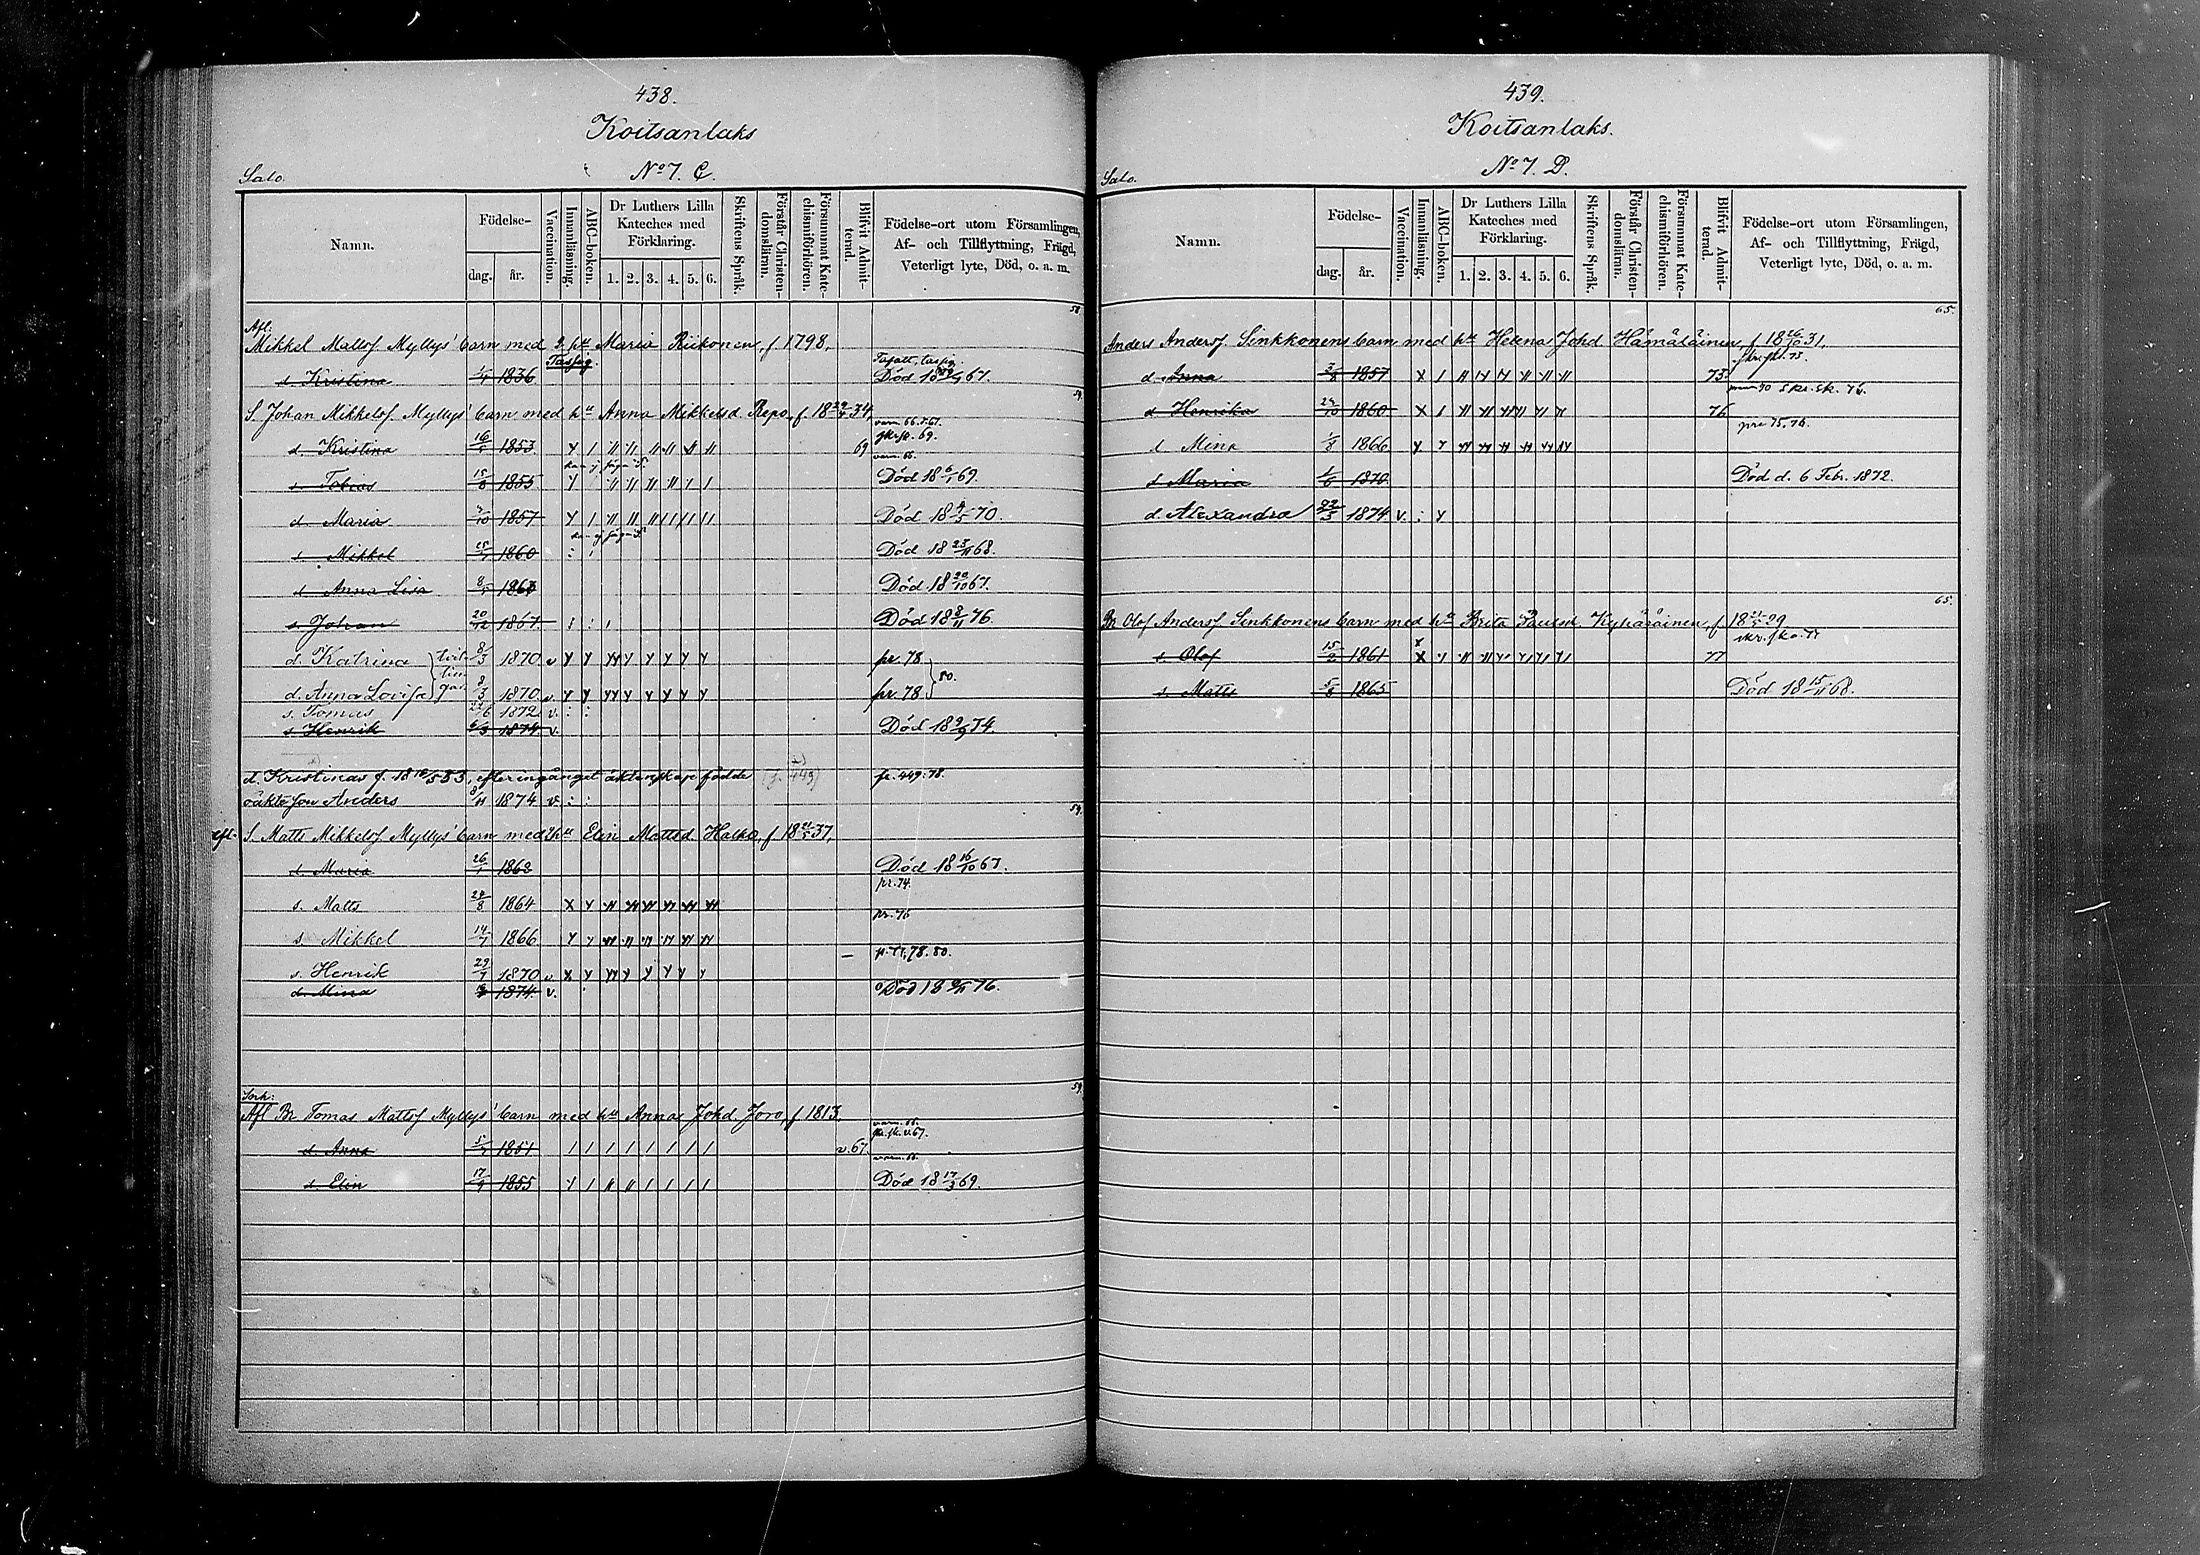 438.
Koitsanlaks
Salo. No 7. C.
Namn. Födelse- dag. år. Vaccination. Innanläsning. ABC-boken. Dr Luthers Lilla Kateches med Förklaring. 1. 2. 3. 4. 5. 6. Skriftens Språk. Förstår Christendomsläran. Försummat Katechismiförhören. Blifvit Admitterad. Födelse-ort utom Församlingen, Af- och Tillflyttning, Frägd, Veterligt lyte, Död, o. a. m.
58
Afl:
Mikkel Mattsf Myllys' barn med 2 hu Maria Riikonen, f 1798,
d Kristina 1836 Död 18 67.
59
S. Johan Mikkelsf. Myllys' barn med hu Anna Mikkelsd. Repo, f. 18 34
d. Kristina 16/5 1853 69 69.
s. Tobias 15/8 1855 Död 18 6/1 69.
d. Maria 1857 Död 18 70.
s. Mikkel 1860 Död 18 23/11 68.
d. Anna Lisa 1863 Död 18 20/10 67.
s. Johan 20/12 1867 Död 18 8/11 76.
d. Katrina 8/3 1870 v pr. 78
d. Anna Lovisa 8/3 1870 v. pr. 78 80.
s. Tomas 1872 v.
s. Henrik 1874 v. Död 18 9/9 74.
d. Kristinas f. 18 16/5 53, efter ingånget äktenskap födde (f. 449) pr. 449: 78.
oäkta son Anders 8/11 1874 v.
59.
S. Matts Mikkelsf Myllys' barn med hu Elin Mattsd. Halko, f 18 21/5 37,
d. Maria 26/1 1862 Död 18 16/10 67.
pr. 74.
s. Matts 24/8 1864
pr. 76
s. Mikkel 14/7 1866
78. 80.
s. Henrik 29/7 1870 v
d. Mina 1874 v. Död 18 76.
59
Afl Br Tomas Mattsf Myllys' barn med hu Anna Johd. Joro, f 1813.
d. Anna 1851 v. 67.
d. Elin 17/9 1855 Död 18 17/3 69.
439.
Koitsanlaks.
Salo. No 7. D.
Namn. Födelse- dag. år. Vaccination. Innanläsning. ABC-boken. Dr Luthers Lilla Kateches med Förklaring. 1. 2. 3. 4. 5. 6. Skriftens Språk. Förstår Christendomsläran. Försummat Katechismiförhören. Blifvit Admitterad. Födelse-ort utom Församlingen, Af- och Tillflyttning, Frägd, Veterligt lyte, Död, o. a. m.
65.
Anders Andersf. Sinkkonens barn med hu Helena Johd Hämäläinen, f 18 26/10 31.
d Anna 1857 73
d Henrika 1860 76
pre 75, 76.
d Mina 1/8 1866
d Maria 1870 Död d. 6 Febr. 1872.
d. Alexandra 22/3 1874 v.
65.
Br Olof Andersf. Sinkkonens barn med hu Brita Paulsd. Kyhäräinen, f. 18 29
s. Olof 15/2 1861 77
s. Matts 1865 Död 18 15/11 68.